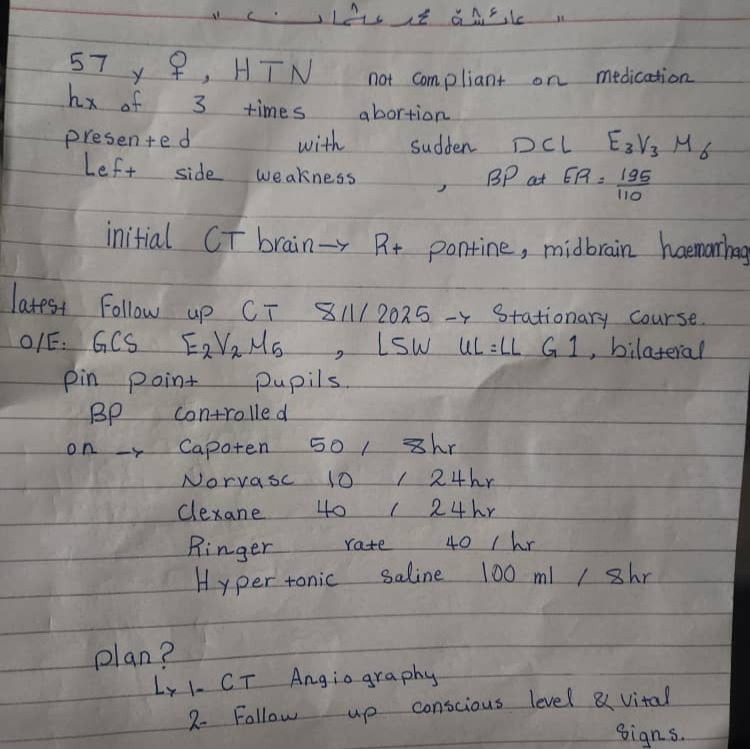 57 y ♀, HTN not compliant on medication
hx of 3 times abortion
presented with sudden DCL E₃V₃M₆
Left side weakness, BP at ER = 195/110
initial CT brain → Rt pontine, midbrain haemorrhag
latest Follow up CT 8/1/2025 → Stationary course.
O/E: GCS E₂V₂M₅, LSW UL=LL G1, bilateral
pin point pupils.
BP controlled
on → Capoten 50 / 8hr
Norvasc 10 / 24hr
Clexane 40 / 24hr
Ringer rate 40 / hr
Hypertonic saline 100 ml / 8hr
plan?
↳ 1- CT Angiography
2- Follow up conscious level & vital
signs.